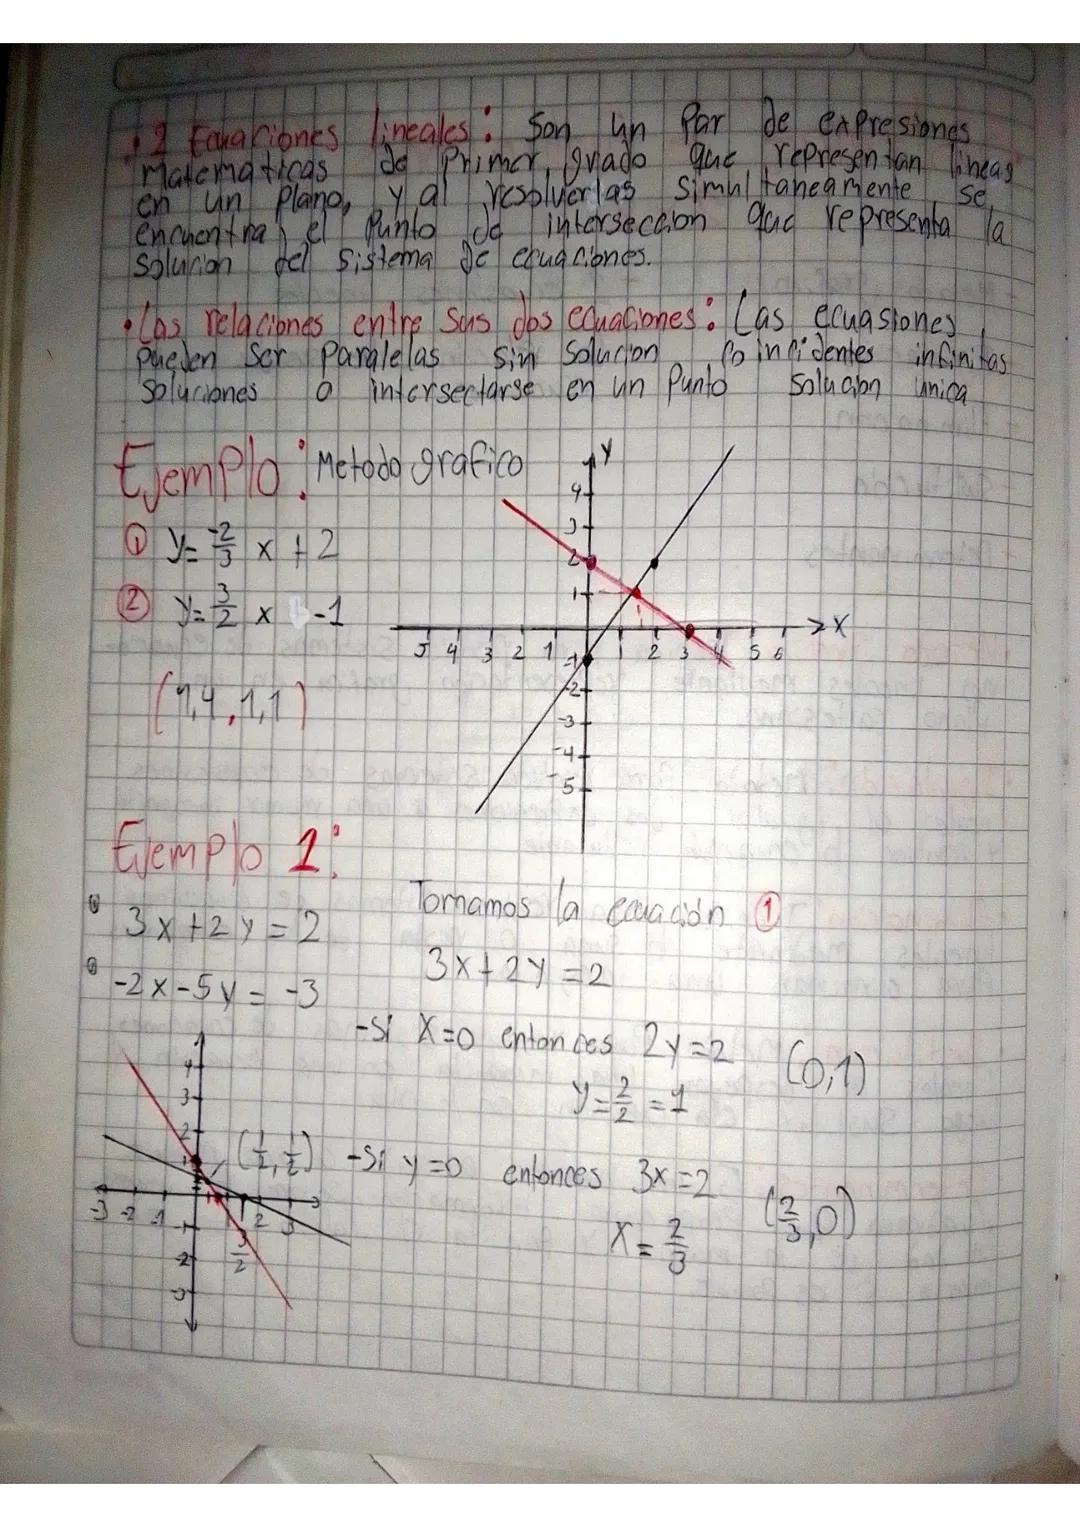 • 2 Ecuaciones lineales: Son un Par de expresiones
Matematicas de Primer grado que representan lineas
en un plano, y al resolverlas simultaneamente se
encuentra el Punto de interseccion que representa la
Solucion del sistema de ecuaciones.
• Las relaciones entre sus dos ecuaciones: Las ecuasiones
pueden ser Paralelas sin Solucion Coincidentes infinitas
Soluciones o intersectarse en un Punto Solucion unica
Ejemplo: Metodo grafico
① y= -2/3 x + 2
② y= 3/2 x -1
(1,4,1,1)
Y
4
3
2
1
X
5 4 3 2 1 1 2 3 4 5 6
-1
-2
-3
-4
-5
Ejemplo 1:
3x+2y=2
-2x-5y= -3
Tomamos la ecuación ①
3x+2y=2
-Si X=0 entonces 2y=2 (0,1)
y=2/2=1
-Si y=0 entonces 3x=2 (2/3,0)
X=2/3
4
3
2
1
(1/2,1/2)
-3 -2 -1 1 2 3
3/2